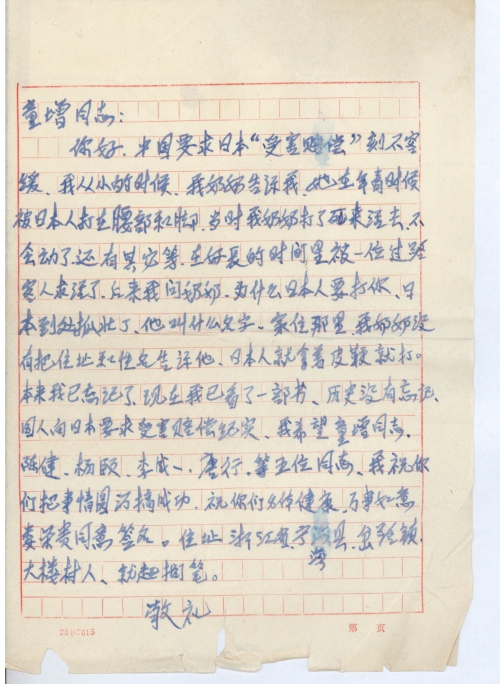 童增同志:
你好,中国要求日本“受害赔偿”刻不容
缓,我从小的时候,我奶奶告诉我,她在年青时候
被日本人打在腰部和脚,当时我奶奶打了死来活去,不
会动了,还有其穷等,在好长的时间里被一位过路
客人救活了,后来我问奶奶,为什么日本人要打你,日
本到处抓壮丁,他叫什么名字,家住那里,我奶奶没
有把住址和姓名告诉他,日本人就拿着皮鞭就打。
本来我已忘记了,现在我已看了一部书,历史没有忘记,
国人向日本要求受害赔偿纪实,我希望童增同志,
陈健、李成一、唐行、等五位同志,我祝你
们把事情圆满搞成功,祝你们身体健康,万事如意
娄荣贵同意签名。住址 浙江省宁海县,岔路镇
大楼村人、就此搁笔。
敬礼
2507615
第 页